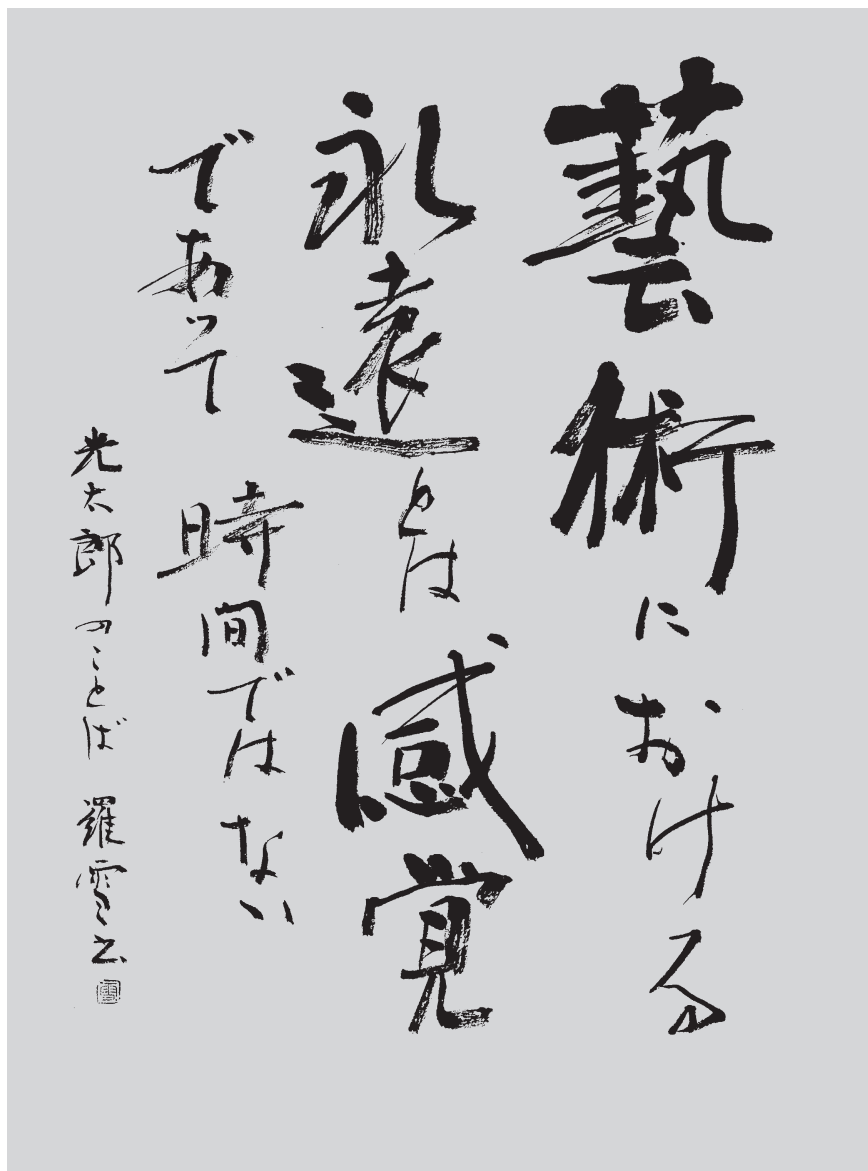 藝術における
永遠とは感覚
であって時間ではない
光太郎のことば 羅雪書